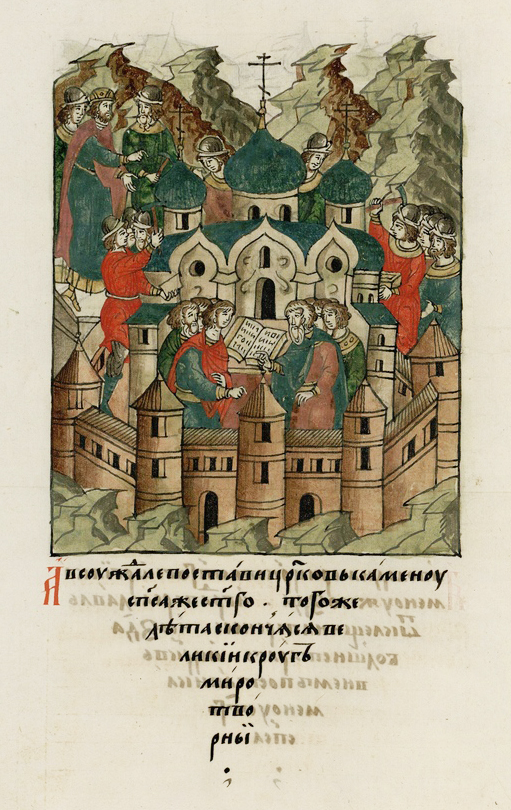 А всоуждⷣале поставица цр҃ковь каменоу
сп҃са жест҃го . тогоже
лѣта скончяся ве
ликїи кроугъ
миро
тво
рныї